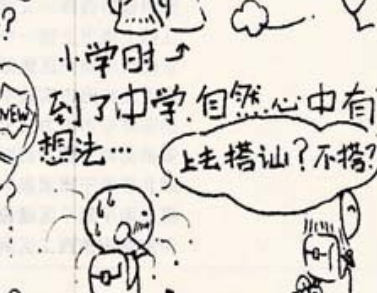 ?
小学时
NEW
到了中学.自然心中有
想法…
上去搭讪?不搭?